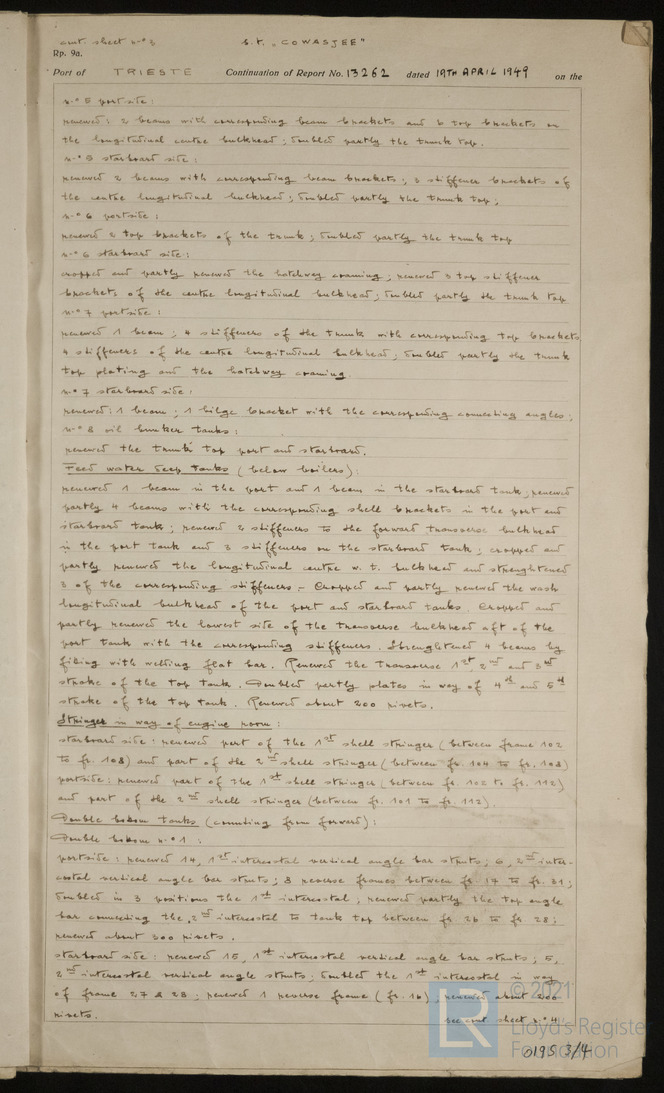 cont sheet n.° 3 s.t. "COWASJEE"
Rp. 9a.
Port of TRIESTE Continuation of Report No. 13262 dated 19TH APRIL 1949 on the
n.° 5 port side:
renewed: 2 beams with corresponding beam brackets and 6 top brackets on
the longitudinal centre bulkhead; doubled partly the trunk top.
n.° 5 starboard side:
renewed 2 beams with corresponding beam brackets; 3 stiffener brackets of
the centre longitudinal bulkhead; doubled partly the trunk top;
n.° 6 portside:
renewed 2 top brackets of the trunk; doubled partly the trunk top
n.° 6 starboard side:
cropped and partly renewed the hatchway coaming; renewed 3 top stiffener
brackets of the centre longitudinal bulkhead; doubled partly the trunk top
n.° 7 portside:
renewed 1 beam; 4 stiffeners of the trunk with corresponding top brackets
4 stiffeners of the centre longitudinal bulkhead; doubled partly the trunk
top plating and the hatchway coaming.
n.° 7 starboard side:
renewed: 1 beam; 1 bilge bracket with the corresponding connecting angles;
n.° 8 oil bunker tanks:
renewed the trunk top port and starboard.
Feed water deep tanks (below boilers):
renewed 1 beam in the port and 1 beam in the starboard tank; renewed
partly 4 beams with the corresponding shell brackets in the port and
starboard tank; renewed 2 stiffeners to the forward transverse bulkhead
in the port tank and 3 stiffeners on the starboard tank; cropped and
partly renewed the longitudinal centre w.t. bulkhead and strenghtened
3 of the corresponding stiffeners. - Cropped and partly renewed the wash
longitudinal bulkhead of the port and starboard tanks. Cropped and
partly renewed the lowest side of the transverse bulkhead aft of the
port tank with the corresponding stiffeners. Strenghtened 4 beams by
filing with welding flat bar. Renewed the transverse 1st, 2nd and 3rd
stroke of the top tank. Doubled partly plates in way of 4th and 5th
stroke of the top tank. Renewed about 200 rivets.
Stringer in way of engine room:
starboard side: renewed part of the 1st shell stringer (between frame 102
to fr. 108) and part of the 2nd shell stringer (between fr. 104 to fr. 108)
portside: renewed part of the 1st shell stringer (between fr. 102 to fr. 112)
and part of the 2nd shell stringer (between fr. 101 to fr. 112).
Double bottom tanks (counting from forward):
Double bottom n.° 1:
portside: renewed 14, 1st intercostal vertical angle bar struts; 6, 2nd inter-
costal vertical angle bar struts; 8 reverse frames between fr. 17 to fr. 31;
doubled in 3 positions the 1st intercostal; renewed partly the top angle
bar connecting the 2nd intercostal to tank top between fr 26 to fr 28;
renewed about 300 rivets.
starboard side: renewed 15, 1st intercostal vertical angle bar struts; 5,
2nd intercostal vertical angle struts; doubled the 1st intercostal in way
of frame 27 & 28; renewed 1 reverse frame (fr. 16); renewed about 200
rivets. see cont sheet n.° 4
© 2021
Lloyd's Register
Foundation
0195 3/4